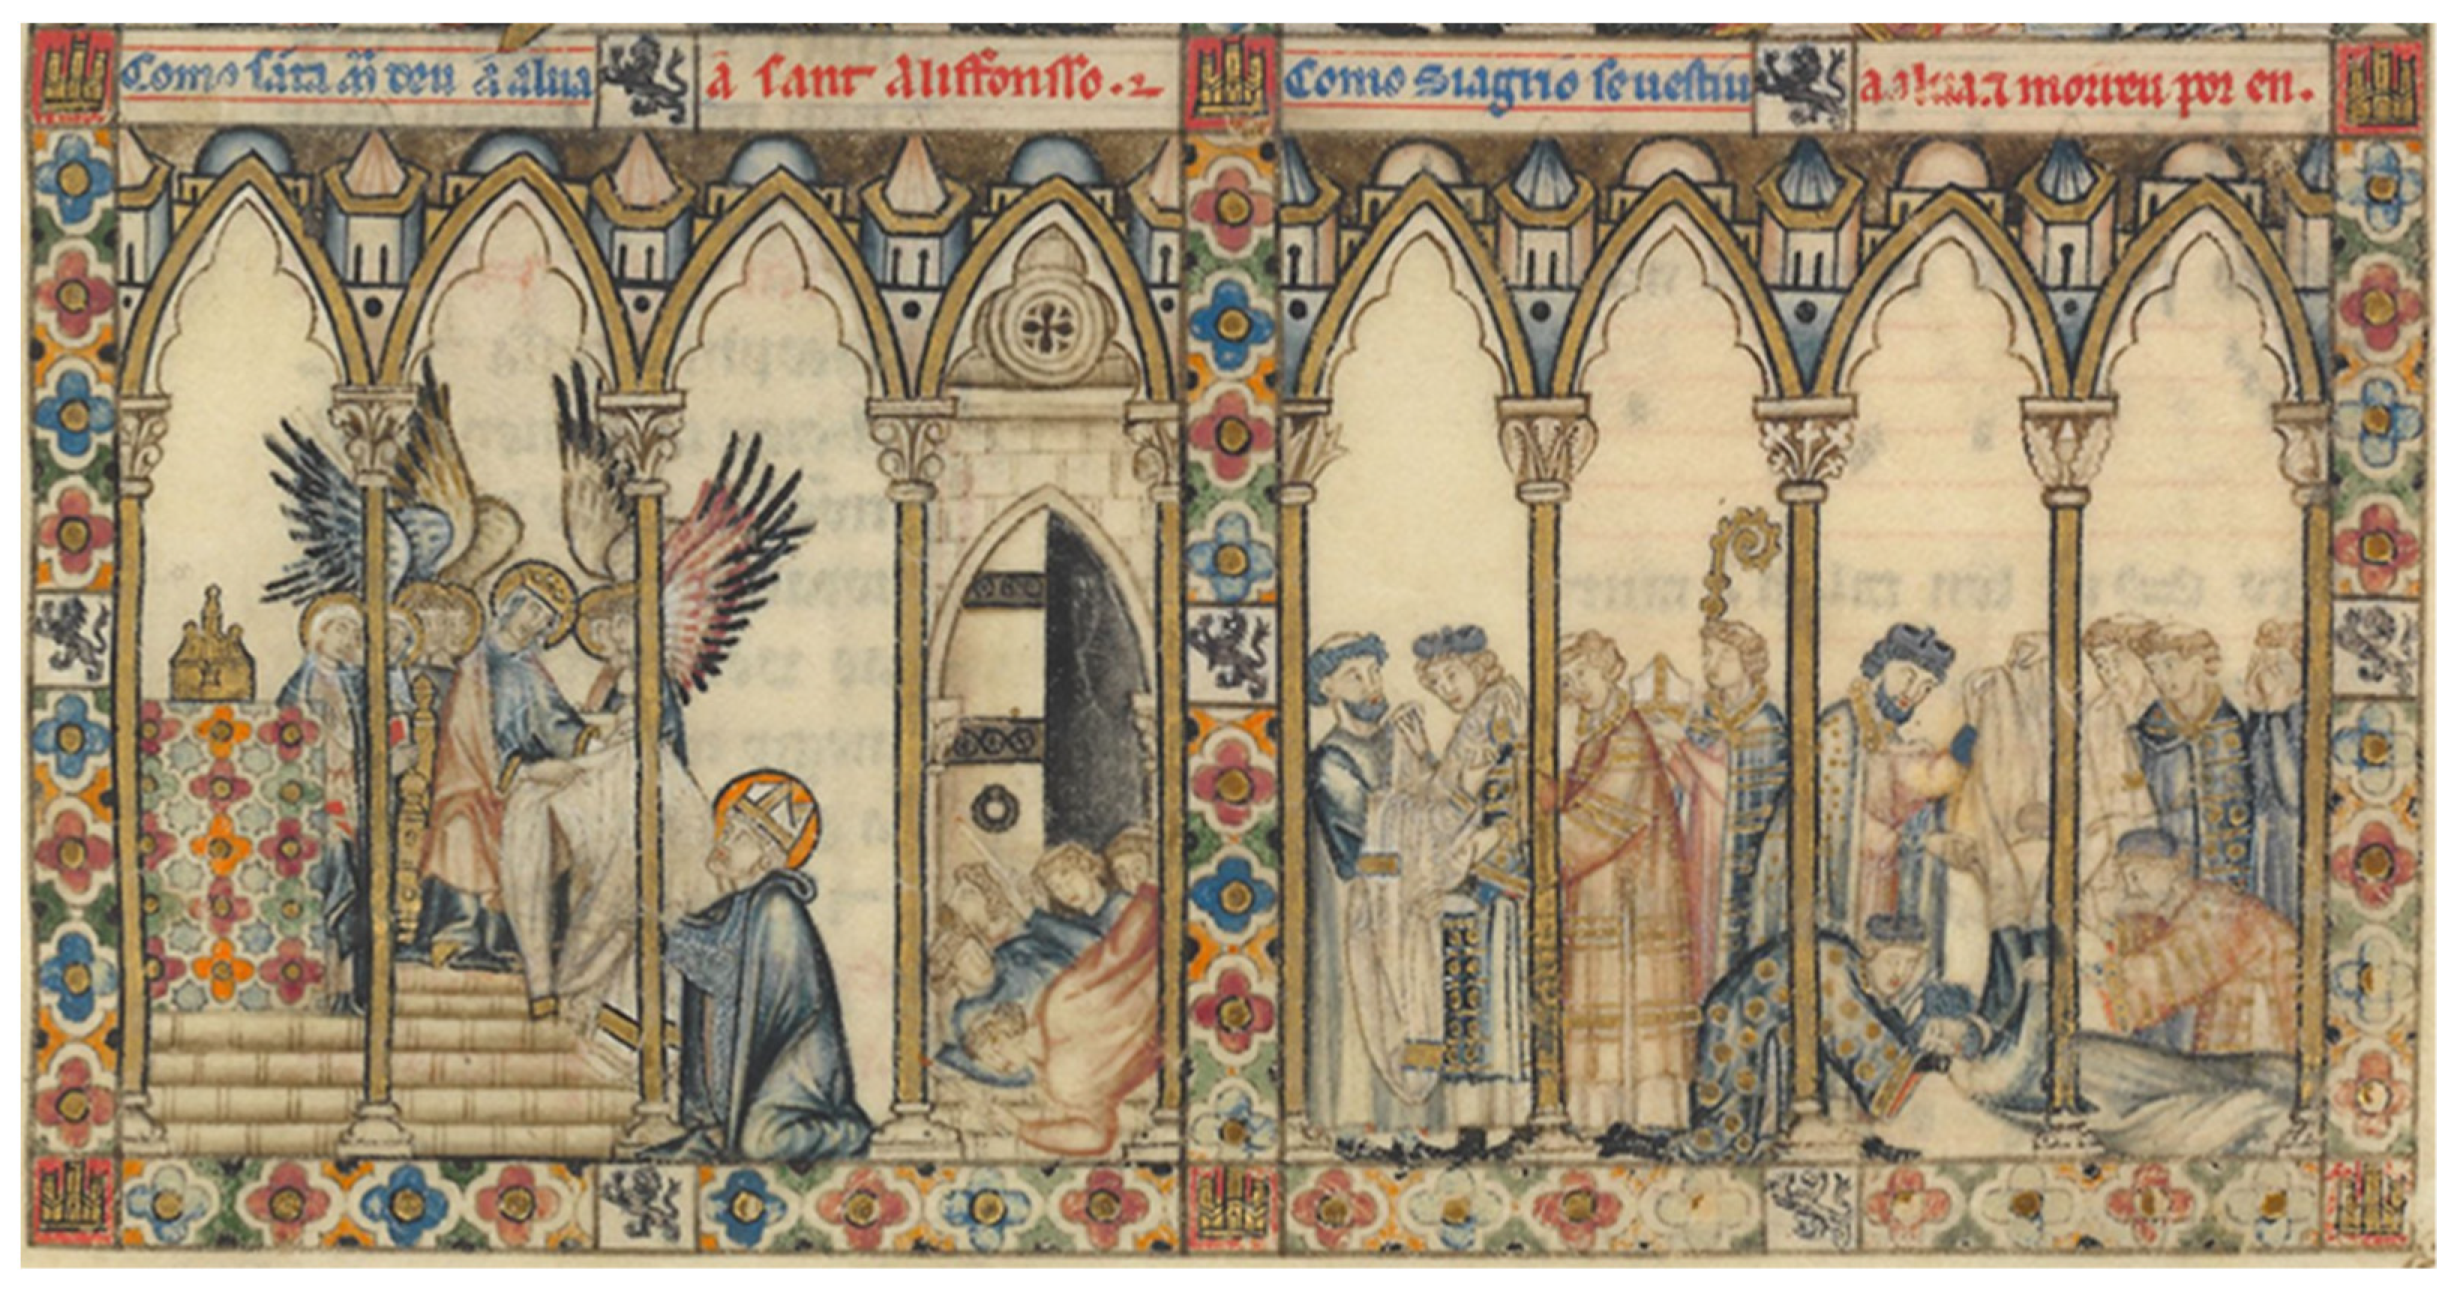 Como sãta mͥ deu a alua a sant Aliffonsso. ⁊
Como Siagrio se uestiu a alua. ⁊ morreu por en.